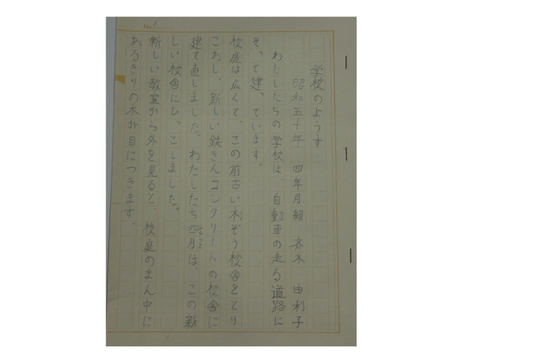 学校のようす
昭和五十年 四年月組 斉木 由利子
わたしたちの学校は、自動車の走る道路に
そって建っています。
校庭は広くて、この前古い木ぞう校舎をとり
こわし、新しい鉄きんコンクリートの校舎に
建て直しました。わたしたち四月は、この新
しい校舎にひっこしました。
新しい教室から外を見ると、校庭のまん中に
あるきりの木が目につきます。